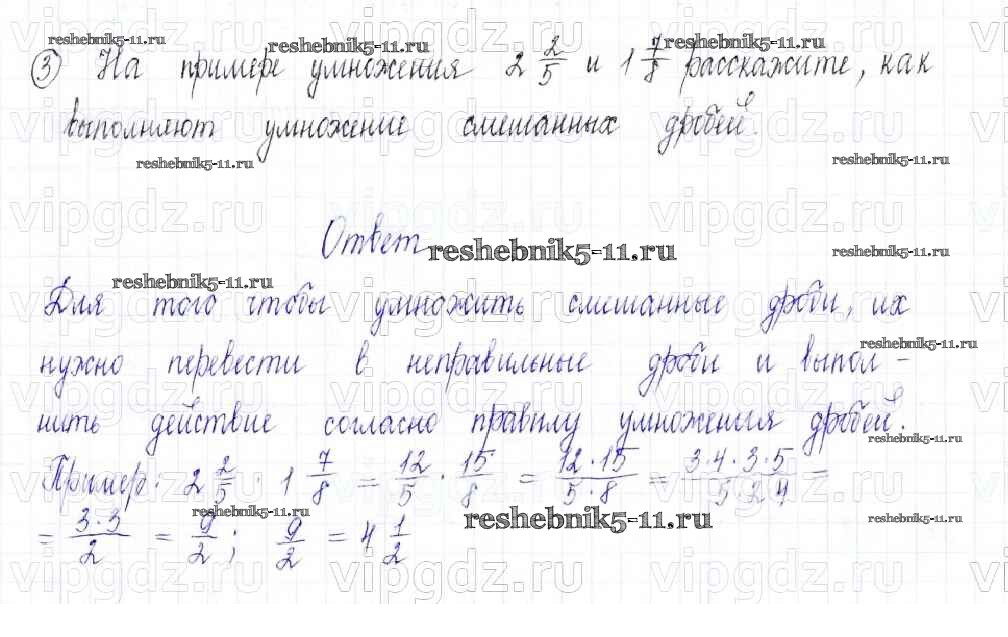 reshebnik5-11.ru reshebnik5-11.ru reshebnik5-11.ru
③ На примере умножения 2 2/5 и 1 7/8 расскажите, как
выполняют умножение смешанных дробей.
reshebnik5-11.ru reshebnik5-11.ru
vipgdz.ru vipgdz.ru vipgdz.ru
Ответ
reshebnik5-11.ru reshebnik5-11.ru
reshebnik5-11.ru
Для того чтобы умножить смешанные дроби, их
reshebnik5-11.ru
нужно перевести в неправильные дроби и выпол-
нить действие согласно правилу умножения дробей.
reshebnik5-11.ru
Пример: 2 2/5 · 1 7/8 = 12/5 · 15/8 = 12·15/5·8 = 3·4·3·5/5·2·4 =
reshebnik5-11.ru reshebnik5-11.ru reshebnik5-11.ru
= 3·3/2 = 9/2; 9/2 = 4 1/2
vipgdz.ru vipgdz.ru vipgdz.ru